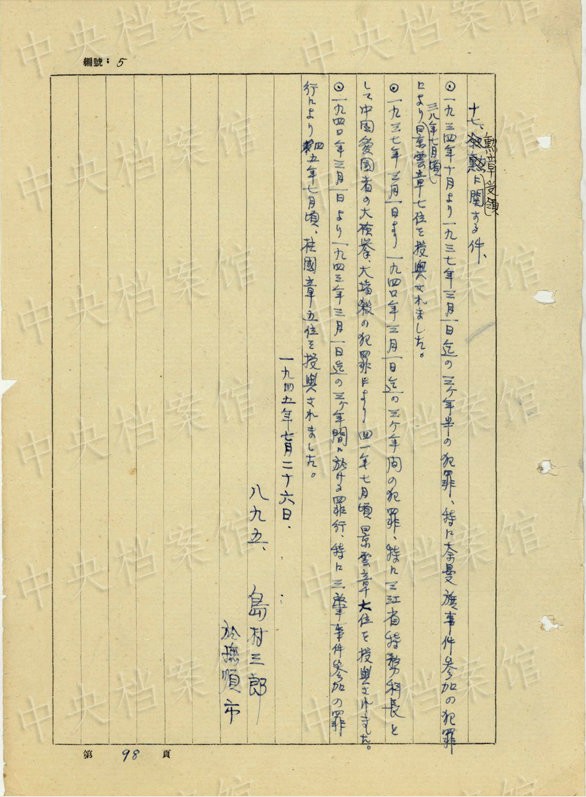 編號：5
十七、勲章受領に関する件、
◎一九三四年十月より一九三七年三月一日迄の三ヶ年半の犯罪、特に奈曼旗事件参加の犯罪
により三八年七月頃景雲章七位を授與されました。
◎一九三七年三月一日より一九四〇年三月一日迄の三ヶ年间の犯罪、特に三江省特務科長と
して中国愛国者の大検挙、大虐殺の犯罪により四一年七月頃景雲章六位を授與されました。
◎一九四〇年三月一日より一九四三年三月一日迄の三ヶ年間に於ける罪行、特に三肇事件参加の罪
行により四五年七月頃、柱國章五位を授與されました。
一九五五年七月二十六日、
八九五、島村三郎
於撫順市
第 98 頁
中央档案馆